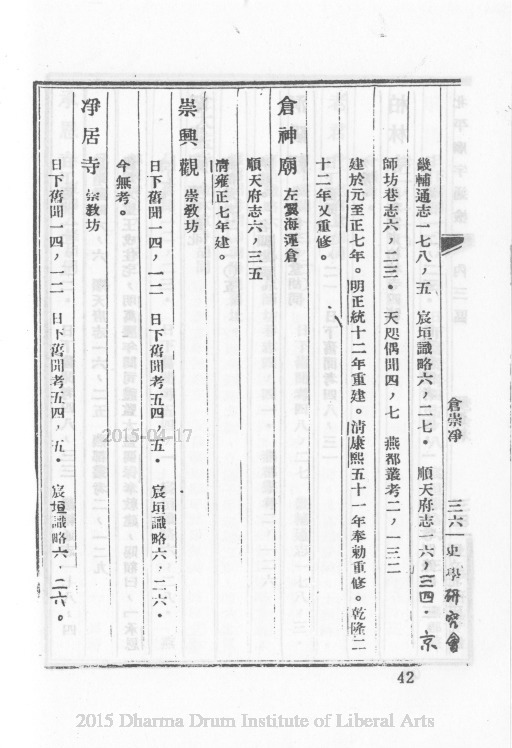 倉崇凈　三六一　史學研究會
畿輔通志一七八，五　宸垣識略六，二七．　順天府志一六，三四．京
師坊巷志六，二三．　天咫偶聞四，七　燕都叢考二，一三二
建於元至正七年。明正統十二年重建。清康熙五十一年奉勅重修。乾隆二
十二年又重修。
倉神廟　左翼海運倉
順天府志六，三五
清雍正七年建。
崇興觀　崇教坊
日下舊聞一四，一二　日下舊聞考五四，五．　宸垣識略六，二六．
今無考。
凈居寺　崇教坊
日下舊聞一四，一二　日下舊聞考五四，五．　宸垣識略六．二六。
42
2015-04-17
2015 Dharma Drum Institute of Liberal Arts